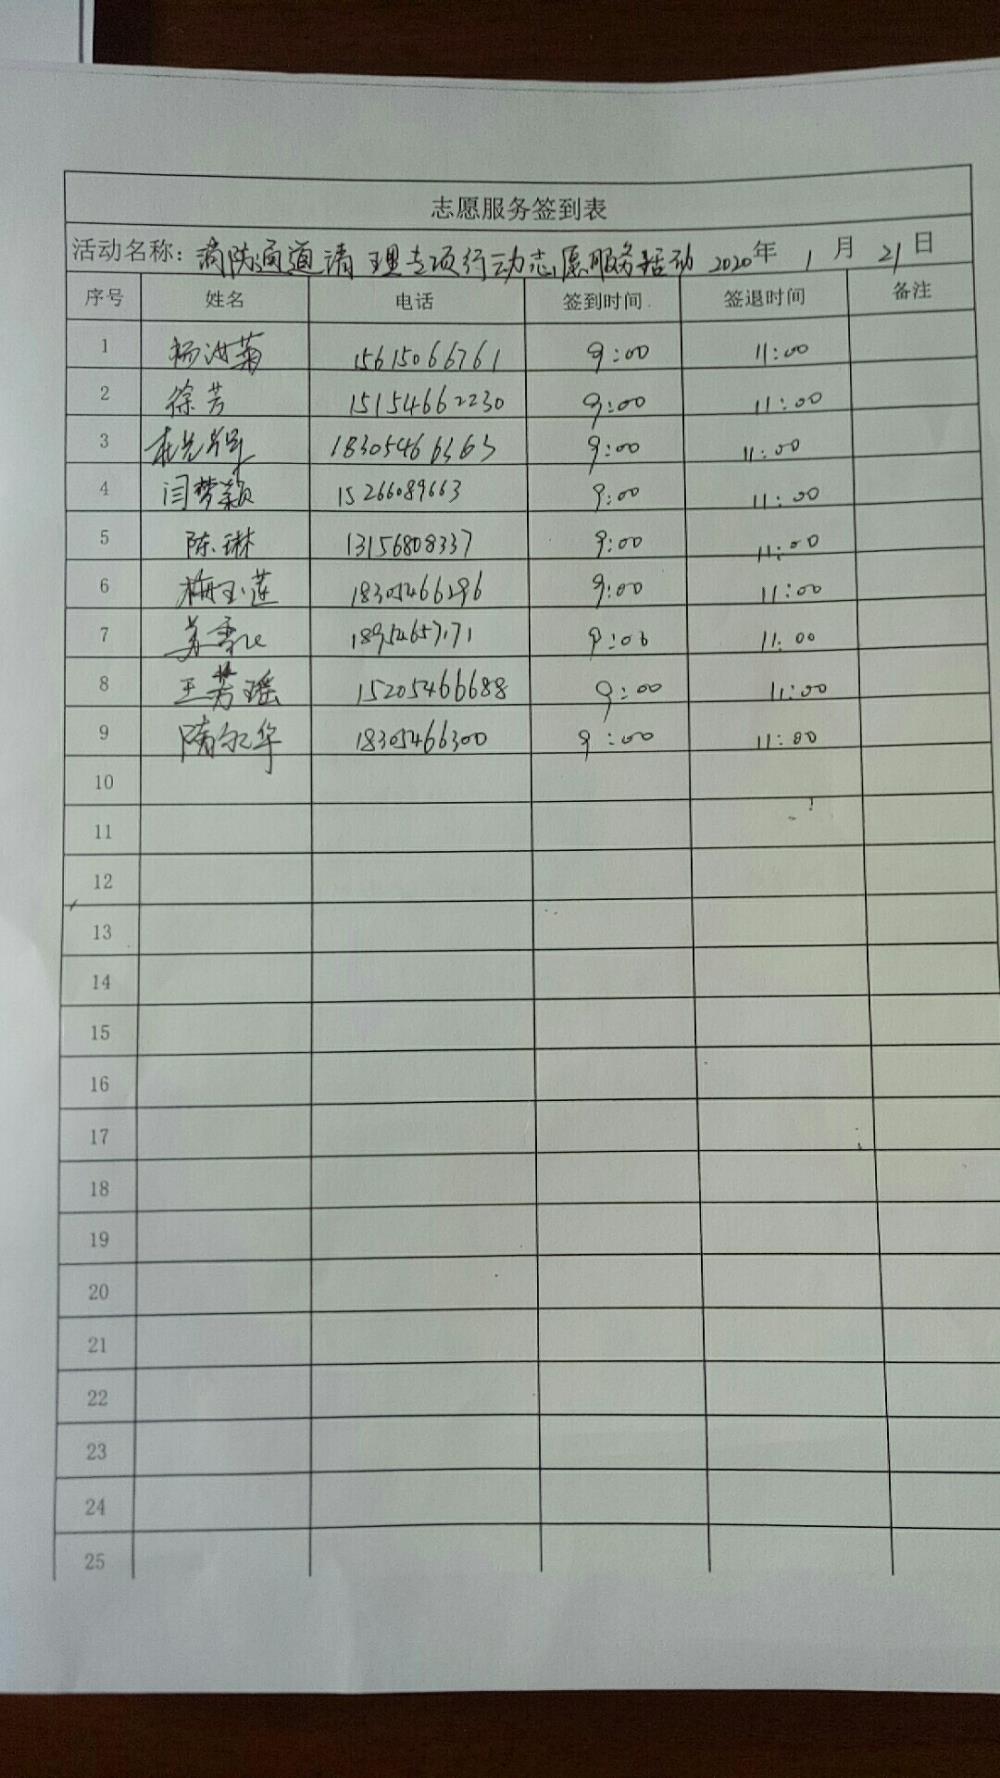 志愿服务签到表
活动名称：消防通道清理专项行动志愿服务活动 2020年 1月 21日
序号 姓名 电话 签到时间 签退时间 备注
1 杨洪菊 15615066761 9:00 11:00
2 徐芳 15154662230 9:00 11:00
3 18305466363 9:00 11:00
4 闫梦颖 15266089663 9:00 11:00
5 陈琳 13156808337 9:00 11:00
6 梅玉莲 18305466296 9:00 11:00
7 18954657171 9:00 11:00
8 王芳瑶 15205466688 9:00 11:00
9 隋永华 18305466300 9:00 11:00
10
11
12
13
14
15
16
17
18
19
20
21
22
23
24
25